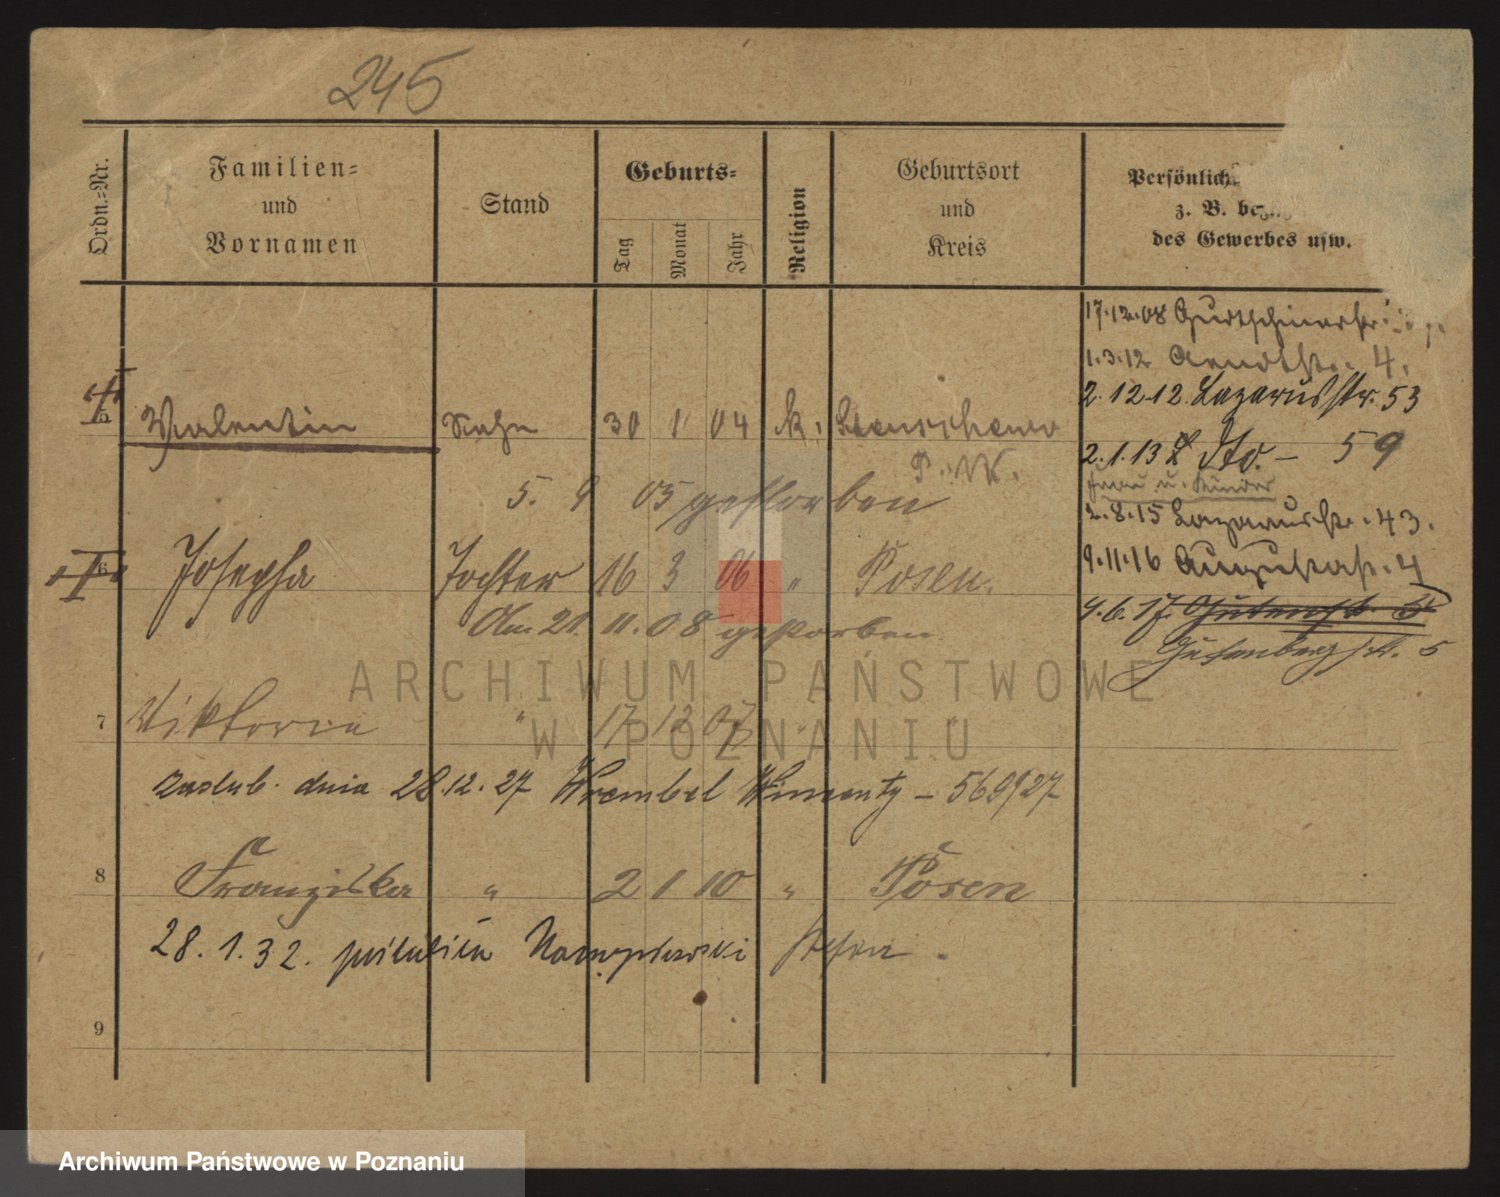 245
Ordn.-Nr.
Familien-
und
Vornamen
Stand
Geburts-
Tag
Monat
Jahr
Religion
Geburtsort
und
Kreis
Persönlich
z. B. bezüg
des Gewerbes usw.
17.12.08 Gurtschinerstr.
1.3.12 Arndtstr. 4.
2.12.12. Lazarusstr. 53
5 Valentin Sohn 30 1 04 k.
P. W.
2.1.13 dto. — 59
Frau u. Kinder
5. 9 05 gestorben
2.8.15 Lazarusstr. 43.
6 Josepha Tochter 16 3 06 " Posen.
9.11.16 Augustastr. 4
Am 21. 11. 08 gestorben
4.6.17.
Gutenbergstr. 5
7 Viktoria " 17 12 07 "
zaślub. dnia 28.12.27 Wrembel — 569/27
8 Franziska " 2 1 10 " Posen
28.1.32. poślubiła Stefan.
9
ARCHIWUM PAŃSTWOWE
W POZNANIU
Archiwum Państwowe w Poznaniu